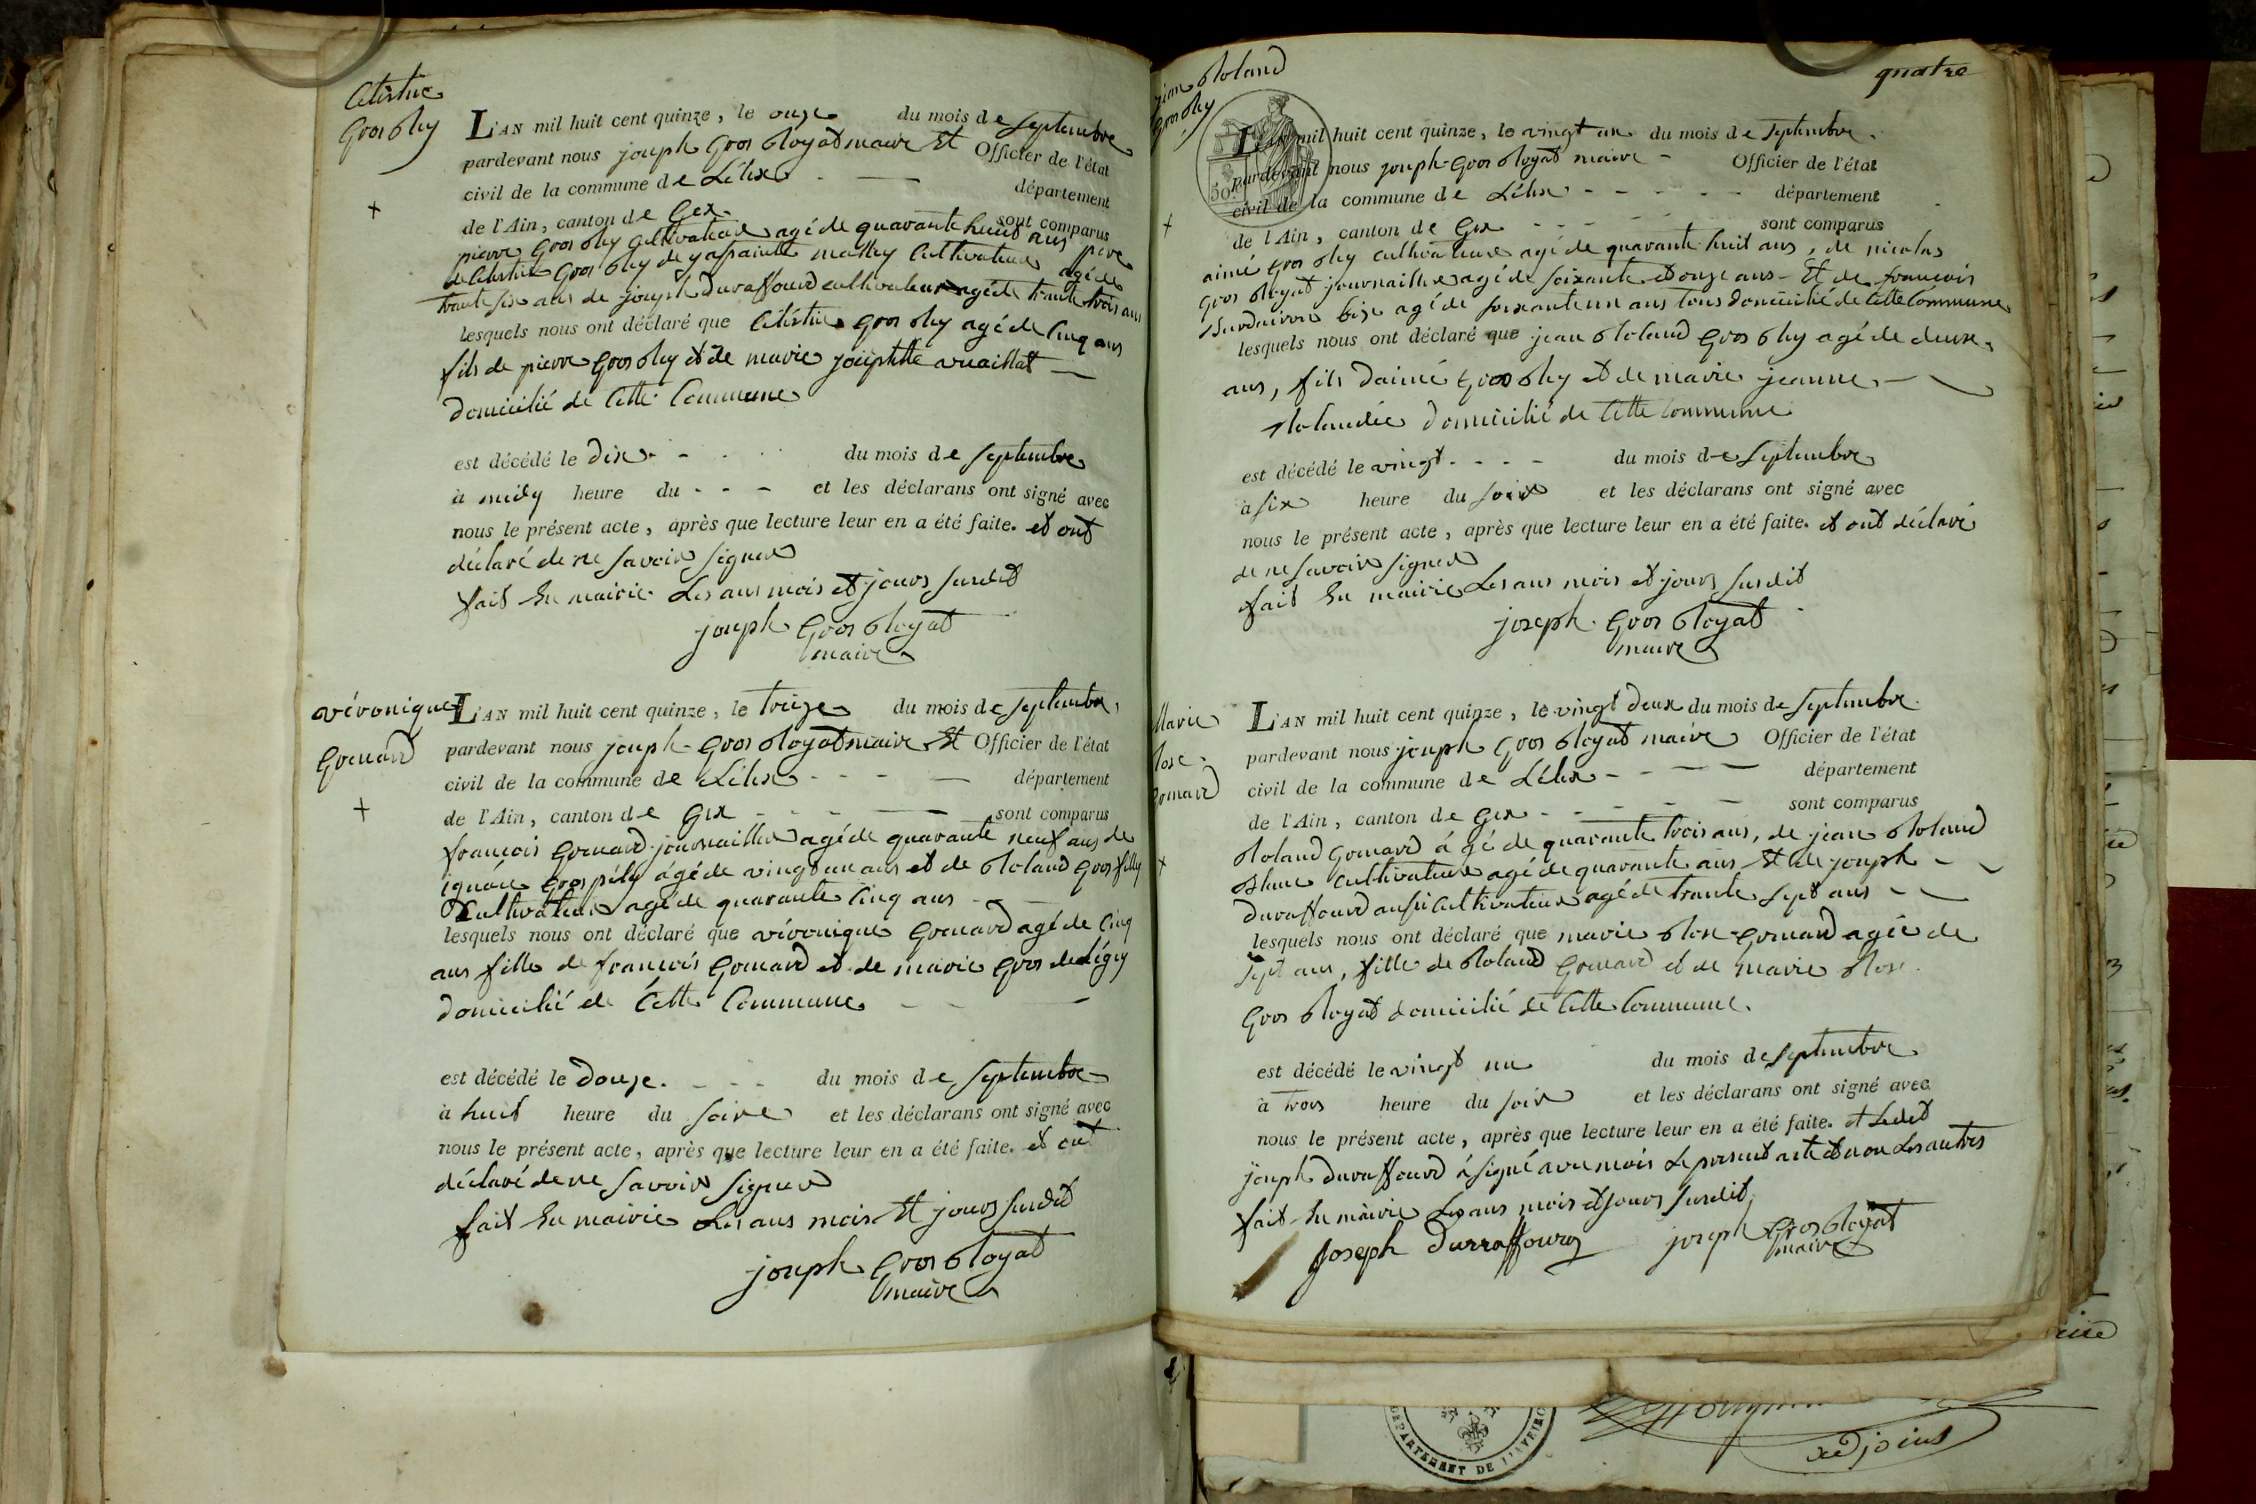 Célestin
Gros Phy
+
L'AN mil huit cent quinze, le onze du mois de Septembre
pardevant nous joseph Gros Royat maire Et Officier de l'état
civil de la commune de Lélex département
de l'Ain, canton de Gex sont comparus
pierre Gros phy Cultivateur agé de quarante huit ans père
de Célestin Gros phy de matthy Cultivateur agé de
trante six ans de joseph Duraffourd cultivateur agé de trante trois ans
lesquels nous ont déclaré que Céléstin Gros phy agé de Cinq ans
fils de pierre Gros phy et de marie josephtte
domicilié de Cette Commune
est décédé le dix du mois de Septembre
à midy heure du et les déclarans ont signé avec
nous le présent acte, après que lecture leur en a été faite. et ont
déclaré de ne Savoir Signer
fait En mairie Les ans mois et jours Susdit
joseph Gros Royat
maire
véronique
Gornard
+
L'AN mil huit cent quinze, le treize du mois de Septembre,
pardevant nous joseph Gros Royat maire Et Officier de l'état
civil de la commune de Lélex département
de l'Ain, canton de Gex sont comparus
françois Gornard journaillier agé de quarante neuf ans de
ignáce Gros agé de vingt un ans et de Roland Gros
Cultivateur agé de quarante Cinq ans
lesquels nous ont déclaré que véronique Gornard agé de Cinq
ans fille de françois Gornard et de marie Gros
domicilié de Cette Commune
est décédé le douze. du mois de Septembre
à huit heure du soire et les déclarans ont signé avec
nous le présent acte, après que lecture leur en a été faite. et ont
déclaré de ne Savoir Signer
fait En mairie Les ans mois Et jours Susdit
joseph Gros Royat
maire
quatre
jean Roland
Gros Phy
+
50
L'AN mil huit cent quinze, le vingt un du mois de Septembre.
pardevant nous joseph Gros Royat maire Officier de l'état
civil de la commune de Lélex département
de l'Ain, canton de Gex sont comparus
aimé Gros phy cultivateur agé de quarante huit ans, de nicolas
Gros Royat journaillier agé de soixante et onze ans Et de françois
agé de soixante un ans tous domicilié de Cette Commune
lesquels nous ont déclaré que jean Roland Gros phy agé de deux
ans, fils daimé Gros phy et de marie jeanne
domicilié de Cette Commune
est décédé le vingt du mois de Septembre
à six heure du soir et les déclarans ont signé avec
nous le présent acte, après que lecture leur en a été faite. et ont déclaré
de ne Savoir Signer
fait En mairie Les ans mois et jours Susdit
joseph Gros Royat
maire
Marie
Rose
Gornard
+
L'AN mil huit cent quinze, le vingt deux du mois de Septembre.
pardevant nous joseph Gros Royat maire Officier de l'état
civil de la commune de Lélex département
de l'Ain, canton de Gex sont comparus
Roland Gornard ágé de quarante trois ans, de jean Roland
cultivateur agé de quarante ans Et de joseph
Duraffourd aussi Cultivateur agé de trante Sept ans
lesquels nous ont déclaré que marie Rose Gornard agée de
Sept ans, fille de Roland Gornard et de marie Rose
Gros Royat domicilié de Cette Commune.
est décédé le vingt un du mois de Septembre
à trois heure du soir et les déclarans ont signé avec
nous le présent acte, après que lecture leur en a été faite. et Ledit
joseph Duraffourd á Signé avec mois Le present acte et non Les autres
fait En mairie Les ans mois et jours Susdit,
joseph Durraffourg joseph Gros Royat
maire
DEPARTEMENT DE L'AVEYRON